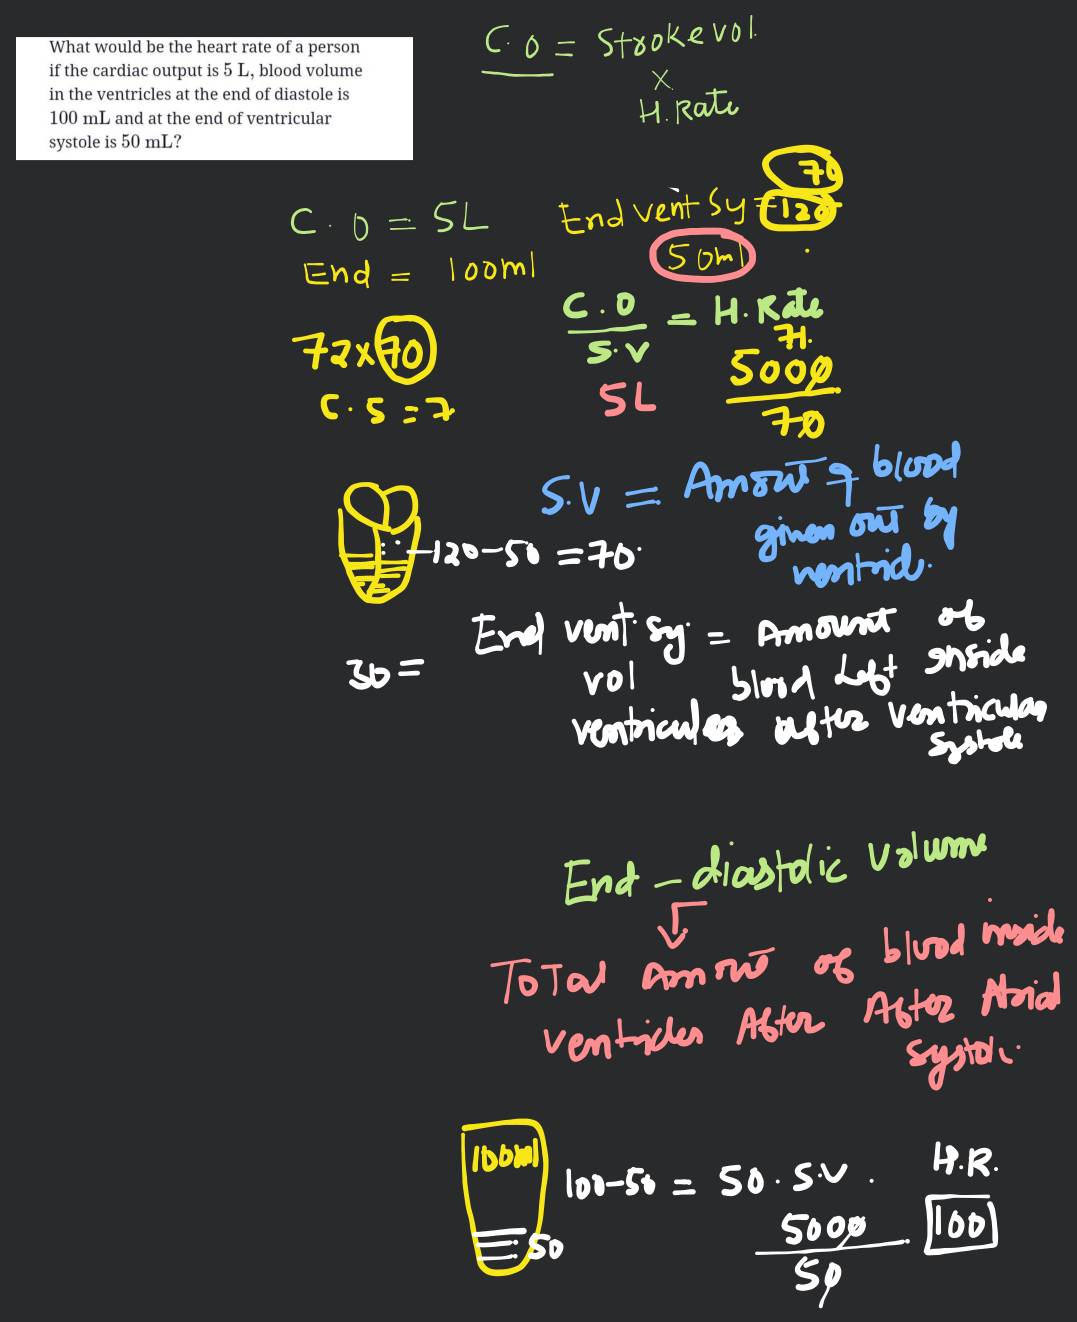 What would be the heart rate of a person
if the cardiac output is 5 L, blood volume
in the ventricles at the end of diastole is
100 mL and at the end of ventricular
systole is 50 mL?
C.O = Stroke vol.
×
H.Rate
C.O = 5L
End = 100ml
70
End vent Sy = 120
50ml
C.O = H.Rate
S.V
5L
71.
5000
70
72×70
C.S = 7
S.V = Amount of blood
given out by
ventricl.
120-50 = 70.
30 =
End vent. Sy. = Amount of
vol blood Left inside
ventricules after ventricular
systole
End - diastolic volume
Total Amount of blood inside
ventricles After After Atrial
Systol.
100ml
50
100-50 = 50. S.V.
5000
50
H.R.
100